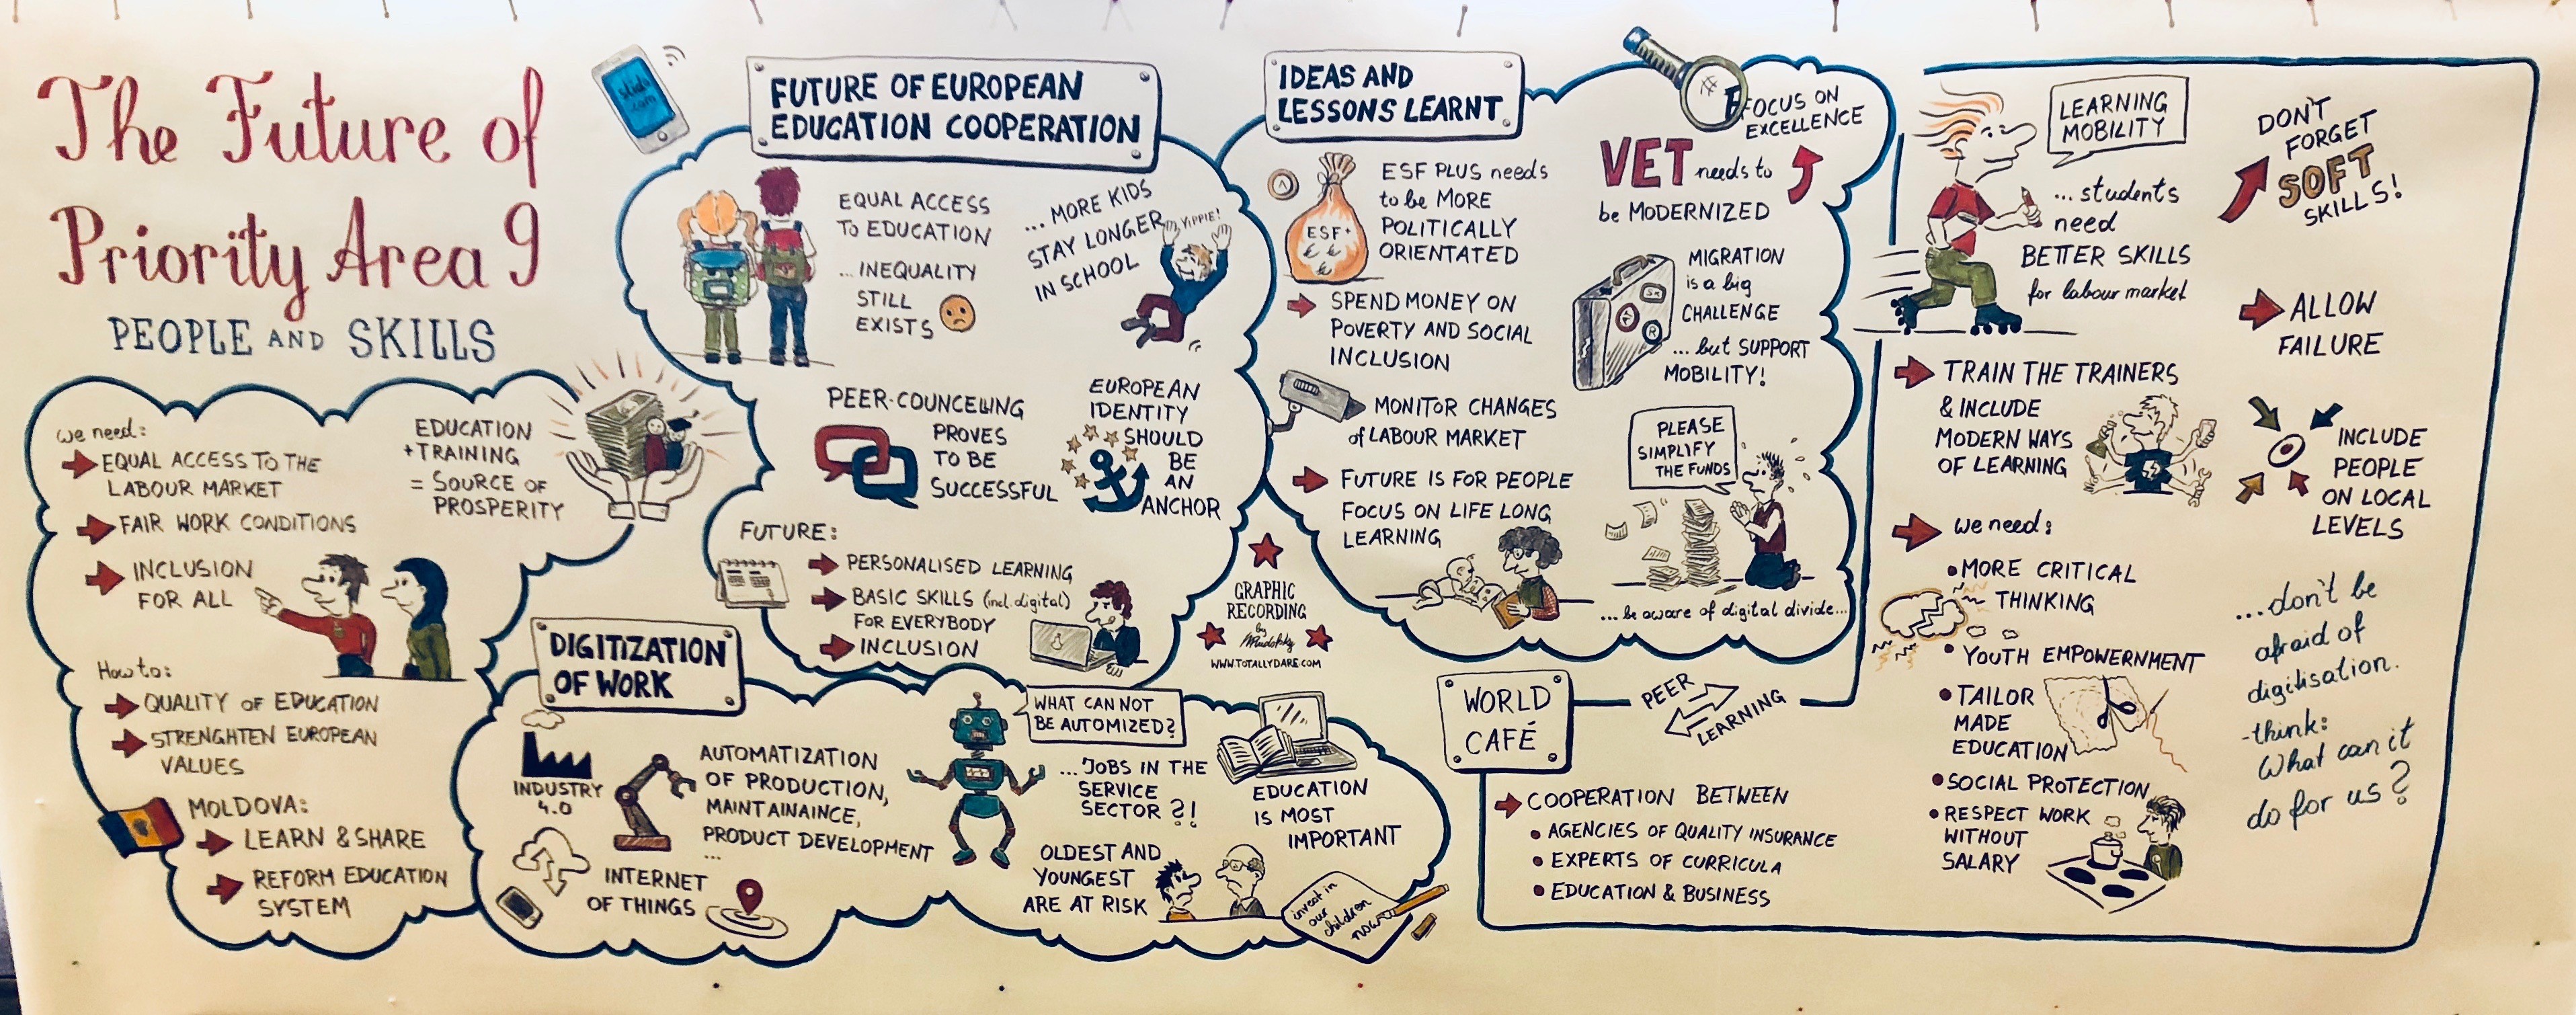 The Future of
Priority Area 9
PEOPLE AND SKILLS
we need:
EQUAL ACCESS TO THE
LABOUR MARKET
FAIR WORK CONDITIONS
INCLUSION
FOR ALL
EDUCATION
+TRAINING
= SOURCE OF
PROSPERITY
How to:
QUALITY OF EDUCATION
STRENGHTEN EUROPEAN
VALUES
MOLDOVA:
LEARN & SHARE
REFORM EDUCATION
SYSTEM
slido
.com
FUTURE OF EUROPEAN
EDUCATION COOPERATION
EQUAL ACCESS
TO EDUCATION
...INEQUALITY
STILL
EXISTS
...MORE KIDS
STAY LONGER
IN SCHOOL
YIPPIE!
PEER-COUNCELLING
PROVES
TO BE
SUCCESSFUL
EUROPEAN
IDENTITY
SHOULD
BE
AN
ANCHOR
FUTURE:
PERSONALISED LEARNING
BASIC SKILLS (incl. digital)
FOR EVERYBODY
INCLUSION
DIGITIZATION
OF WORK
INDUSTRY
4.0
AUTOMATIZATION
OF PRODUCTION,
MAINTAINAINCE,
PRODUCT DEVELOPMENT
...
INTERNET
OF THINGS
WHAT CAN NOT
BE AUTOMIZED?
...JOBS IN THE
SERVICE
SECTOR ?!
OLDEST AND
YOUNGEST
ARE AT RISK
EDUCATION
IS MOST
IMPORTANT
invest in
our
children
now
GRAPHIC
RECORDING
by
WWW.TOTALLYDARE.COM
IDEAS AND
LESSONS LEARNT
ESF+
€ € €
ESF PLUS needs
to be MORE
POLITICALLY
ORIENTATED
SPEND MONEY ON
POVERTY AND SOCIAL
INCLUSION
MONITOR CHANGES
of LABOUR MARKET
FUTURE IS FOR PEOPLE
FOCUS ON LIFE LONG
LEARNING
FOCUS ON
EXCELLENCE
VET needs to
be MODERNIZED
MIGRATION
is a big
CHALLENGE
...but SUPPORT
MOBILITY!
PLEASE
SIMPLIFY
THE FUNDS
...be aware of digital divide...
WORLD
CAFÉ
PEER
LEARNING
COOPERATION BETWEEN
• AGENCIES OF QUALITY INSURANCE
• EXPERTS OF CURRICULA
• EDUCATION & BUSINESS
LEARNING
MOBILITY
...students
need
BETTER SKILLS
for labour market
TRAIN THE TRAINERS
& INCLUDE
MODERN WAYS
OF LEARNING
we need:
• MORE CRITICAL
THINKING
• YOUTH EMPOWERNMENT
• TAILOR
MADE
EDUCATION
• SOCIAL PROTECTION
• RESPECT WORK
WITHOUT
SALARY
DON'T
FORGET
SOFT
SKILLS!
ALLOW
FAILURE
INCLUDE
PEOPLE
ON LOCAL
LEVELS
...don't be
afraid of
digitisation.
-think:
What can it
do for us?